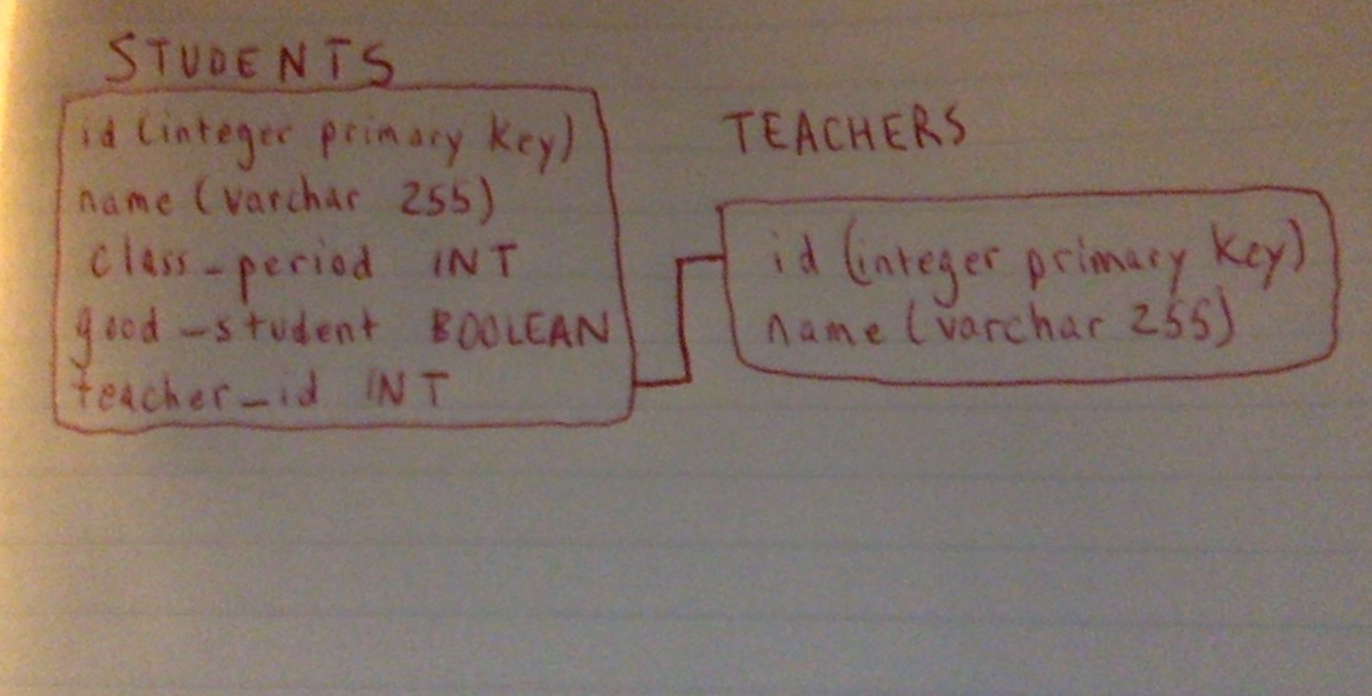 STUDENTS
id (integer primary key)
name (varchar 255)
class_period INT
good_student BOOLEAN
teacher_id INT
TEACHERS
id (integer primary key)
name (varchar 255)